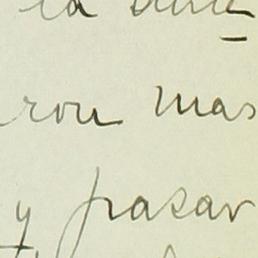 la
ron mas
y pasar